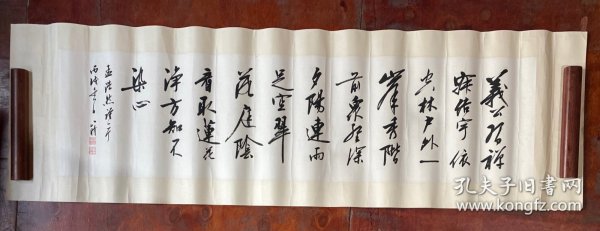 義公習禪
寂結宇依
空林戶外一
峯秀階
前衆壑深
夕陽連雨
足空翠
落庭陰
看取蓮花
淨方知不
染心
孟浩然
丙戌
孔夫子旧书网
www.kongfz.com